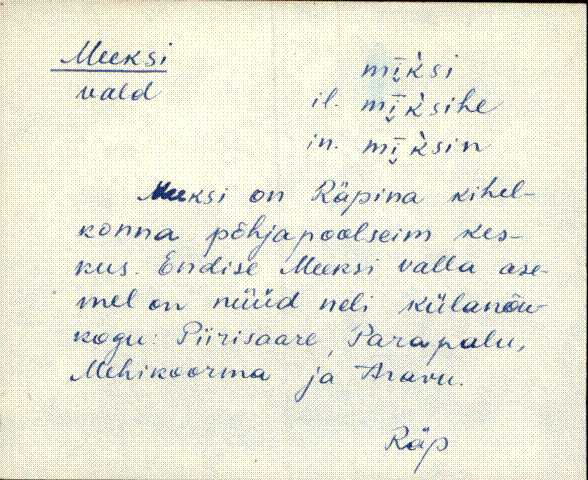 Meeksi
vald
mī̮k̀si
il. mī̮k̀sihe
in. mī̮k̀sin
Meeksi on Räpina kihel-
konna põhjapoolseim kes-
kus. Endise Meeksi valla ase-
mel on nüüd neli külanõu-
kogu: Piirisaare, Parapalu,
Mehikoorma ja Aravu.
Räp